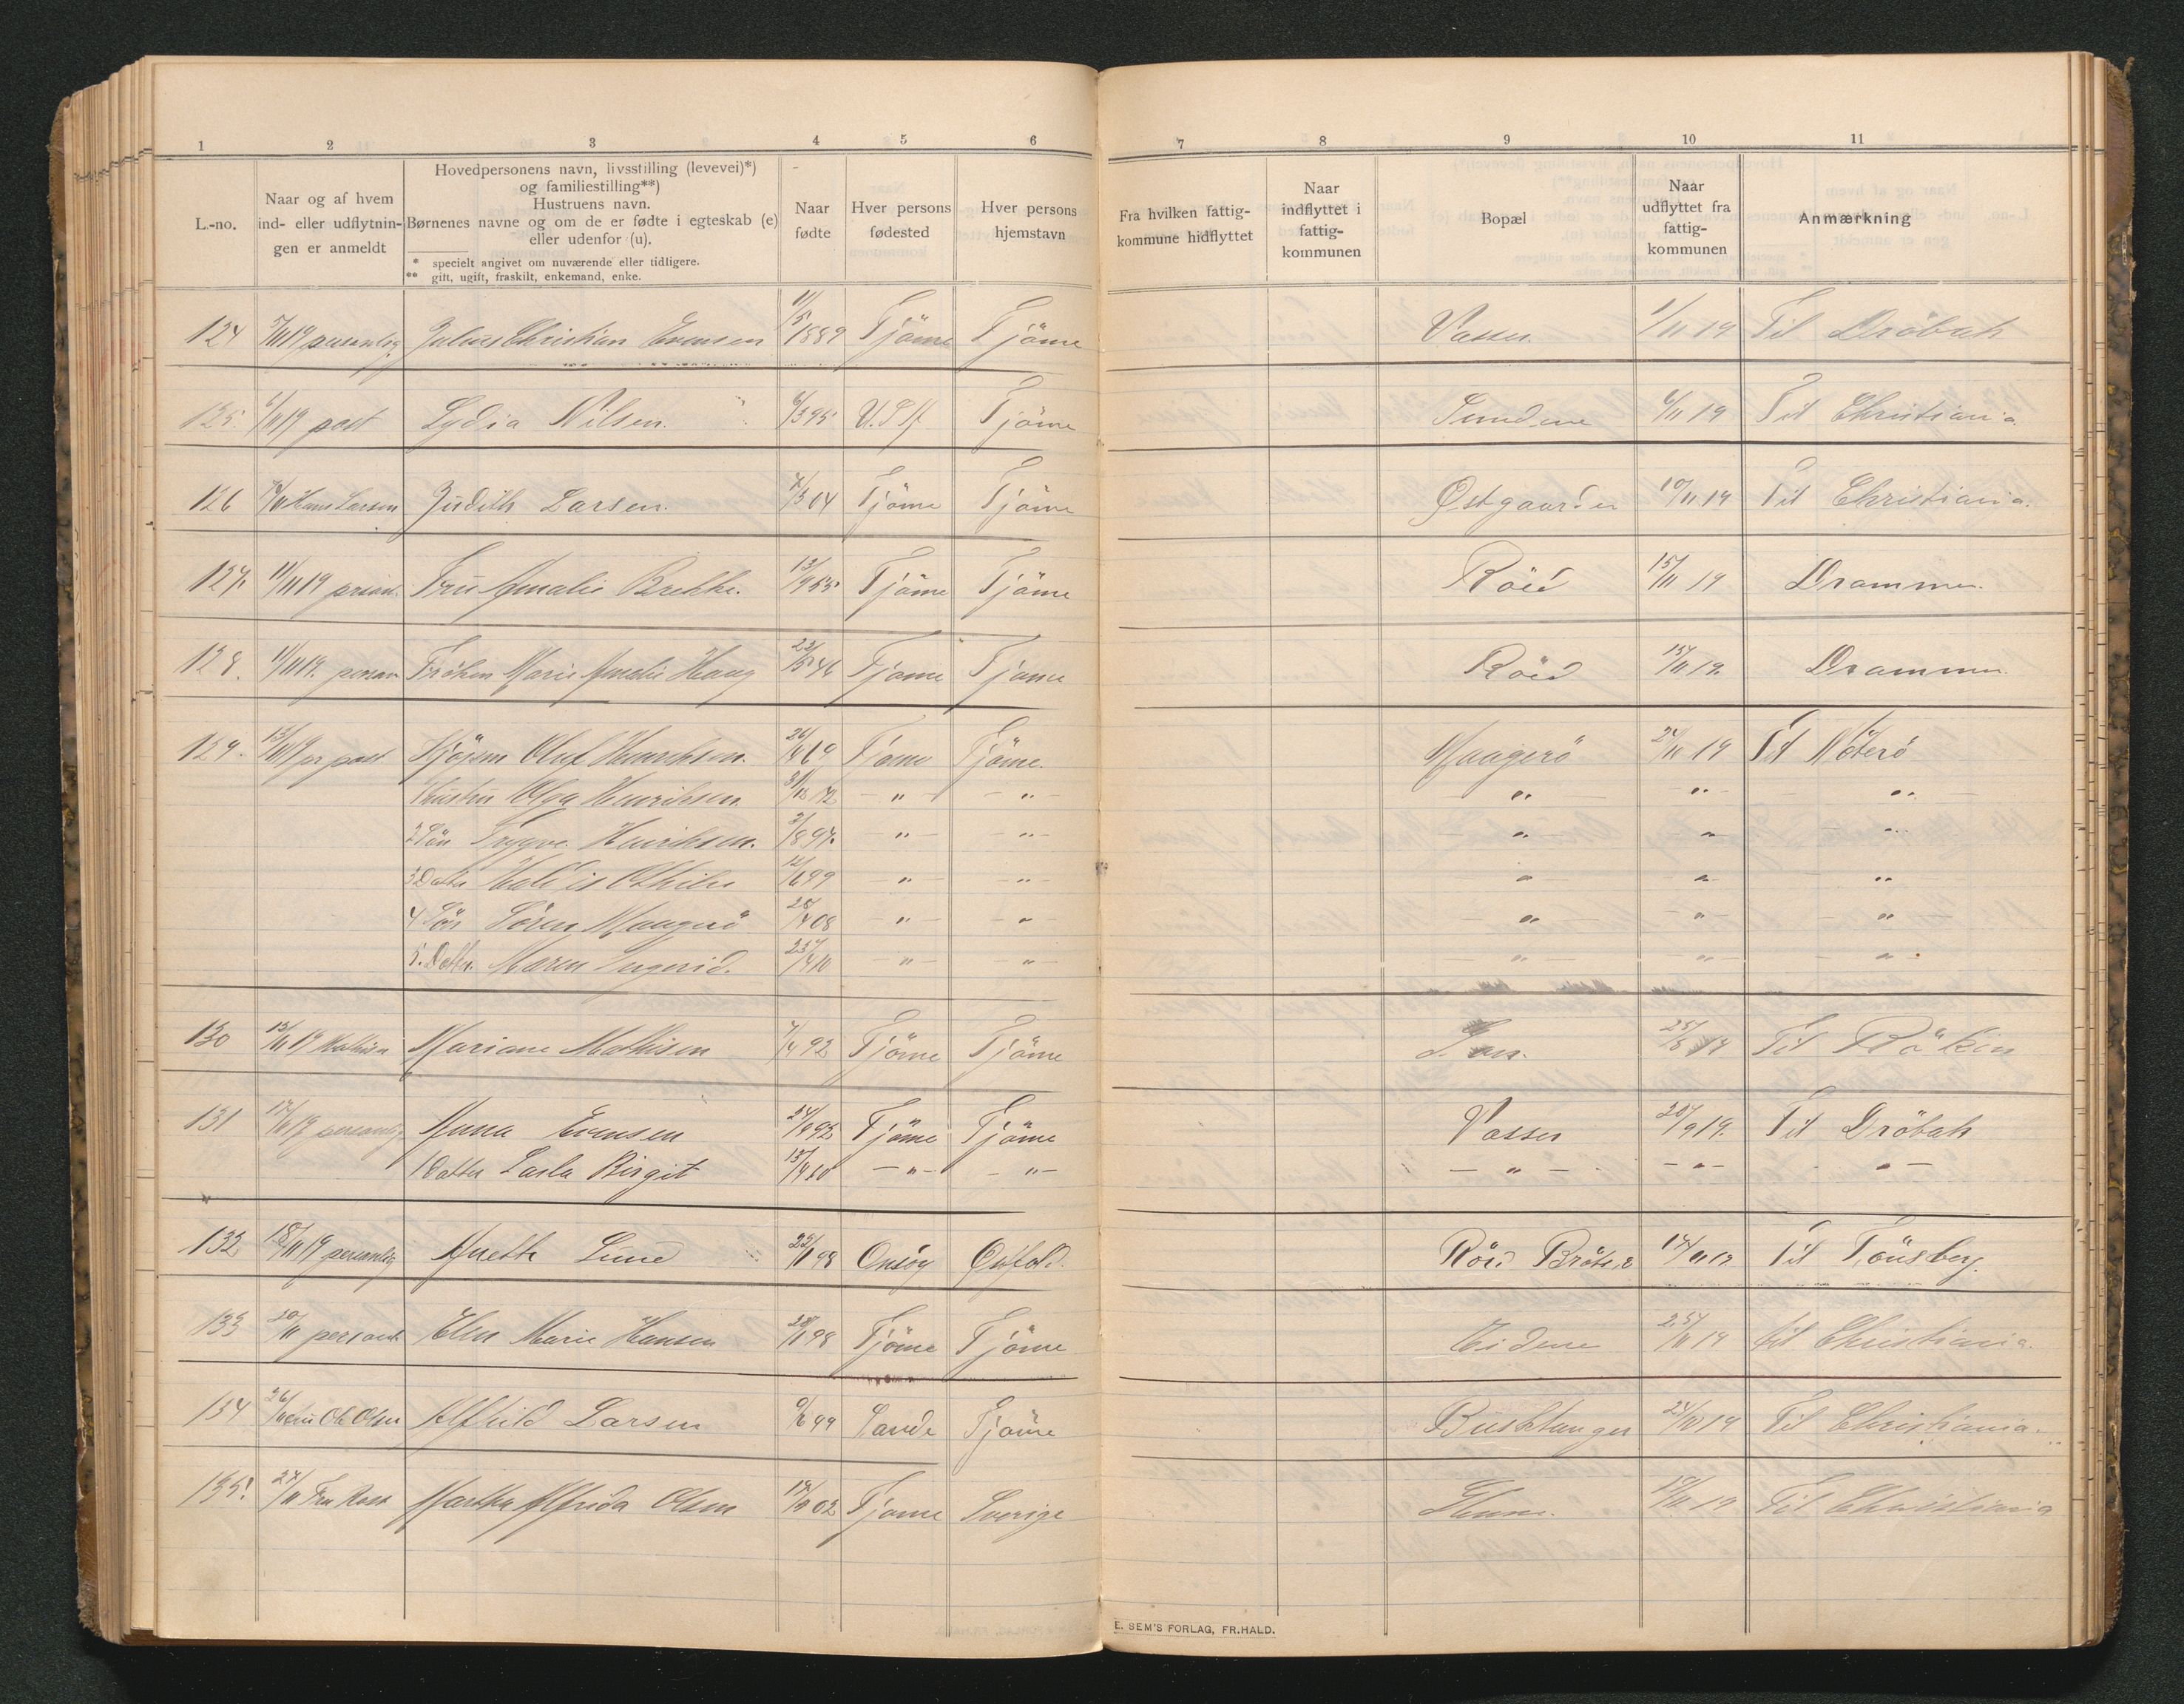 1 2 3 4 5 6 7 8 9 10 11
L.-no.
Naar og af hvem
ind- eller udflytnin-
gen er anmeldt
Hovedpersonens navn, livsstilling (levevei)*)
og familiestilling**)
Hustruens navn.
Børnenes navne og om de er fødte i egteskab (e)
eller udenfor (u).
* specielt angivet om nuværende eller tidligere.
** gift, ugift, fraskilt, enkemand, enke.
Naar
fødte
Hver persons
fødested
Hver persons
hjemstavn
Fra hvilken fattig-
kommune hidflyttet
Naar
indflyttet i
fattig-
kommunen
Bopæl
Naar
udflyttet fra
fattig-
kommunen
Anmærkning
124 7/11 19 personlig Julius Christian Evensen 11/5 1889 Tjöme Tjöme Vasser 1/11 19 Til Dröbak
125. 6/11 19 post Lydia Nilsen. 6/3 95 Tjöme Sundene 6/11 19 Til Christiania
126 Hans Larsen Judith Larsen. 04 Tjöme Tjöme Østgaarden 10/11 19 Til Christiania.
127. 11/11 19 Fru Amalie Brekke. 13/9 55 Tjöme Tjöme Röed 15/11 19 Drammen.
128. 11/11 19. person Fröken Marie Amalie Haug 46 Tjöme Tjöme Röed 15/11 19. Drammen.
129. 13/11 19 pr post Oluf Henriksen. 26/4 69 Tjöme Tjöme. Maagerö 24/11 19 Til Nöterö
Hustru Olga Henriksen. 31/12 72 — " — — " — — " — — " — — " —
2 Sön Trygve Henriksen. 3/8 97. — " — — " — — " — — " — — " —
3 Datter Othilie 12/6 99 — " — — " — " " — " —
4 Sön Sören Maagerö 28/4 08 — " — — " — — " — — " — — " —
5. Datter. Maren Ingerid. 10 — " — — " — — " — — " — — " —
130 15/11 19 Mathisen Mariane Mathisen 7/4 92 Tjöme Tjöme 19 Til Röken
131 17/11 19 personlig Anna Evensen 92 Tjöme Tjöme Vasser 20/9 19. Til Dröbak
1 Datter Birgit 15/4 10 — " — — " — — " — — " — " —
132 18/11 19 personlig Anette Lund 98 Onsöy Østfold. Röed 19 Til Tönsberg.
133 20/11 personl Elen Marie Hansen 28/11 98 Tjöme Tjöme Eidene 25/11 19 til Christiania.
134 26/11 Olsen Alfhild Larsen 99 Sande Tjöme 19 Til Christiania.
135. 27/11 Fru Martha Alfrida Olsen 02 Tjöme Sverige 19 Til Christiania
E. SEM'S FORLAG, FR.HALD.